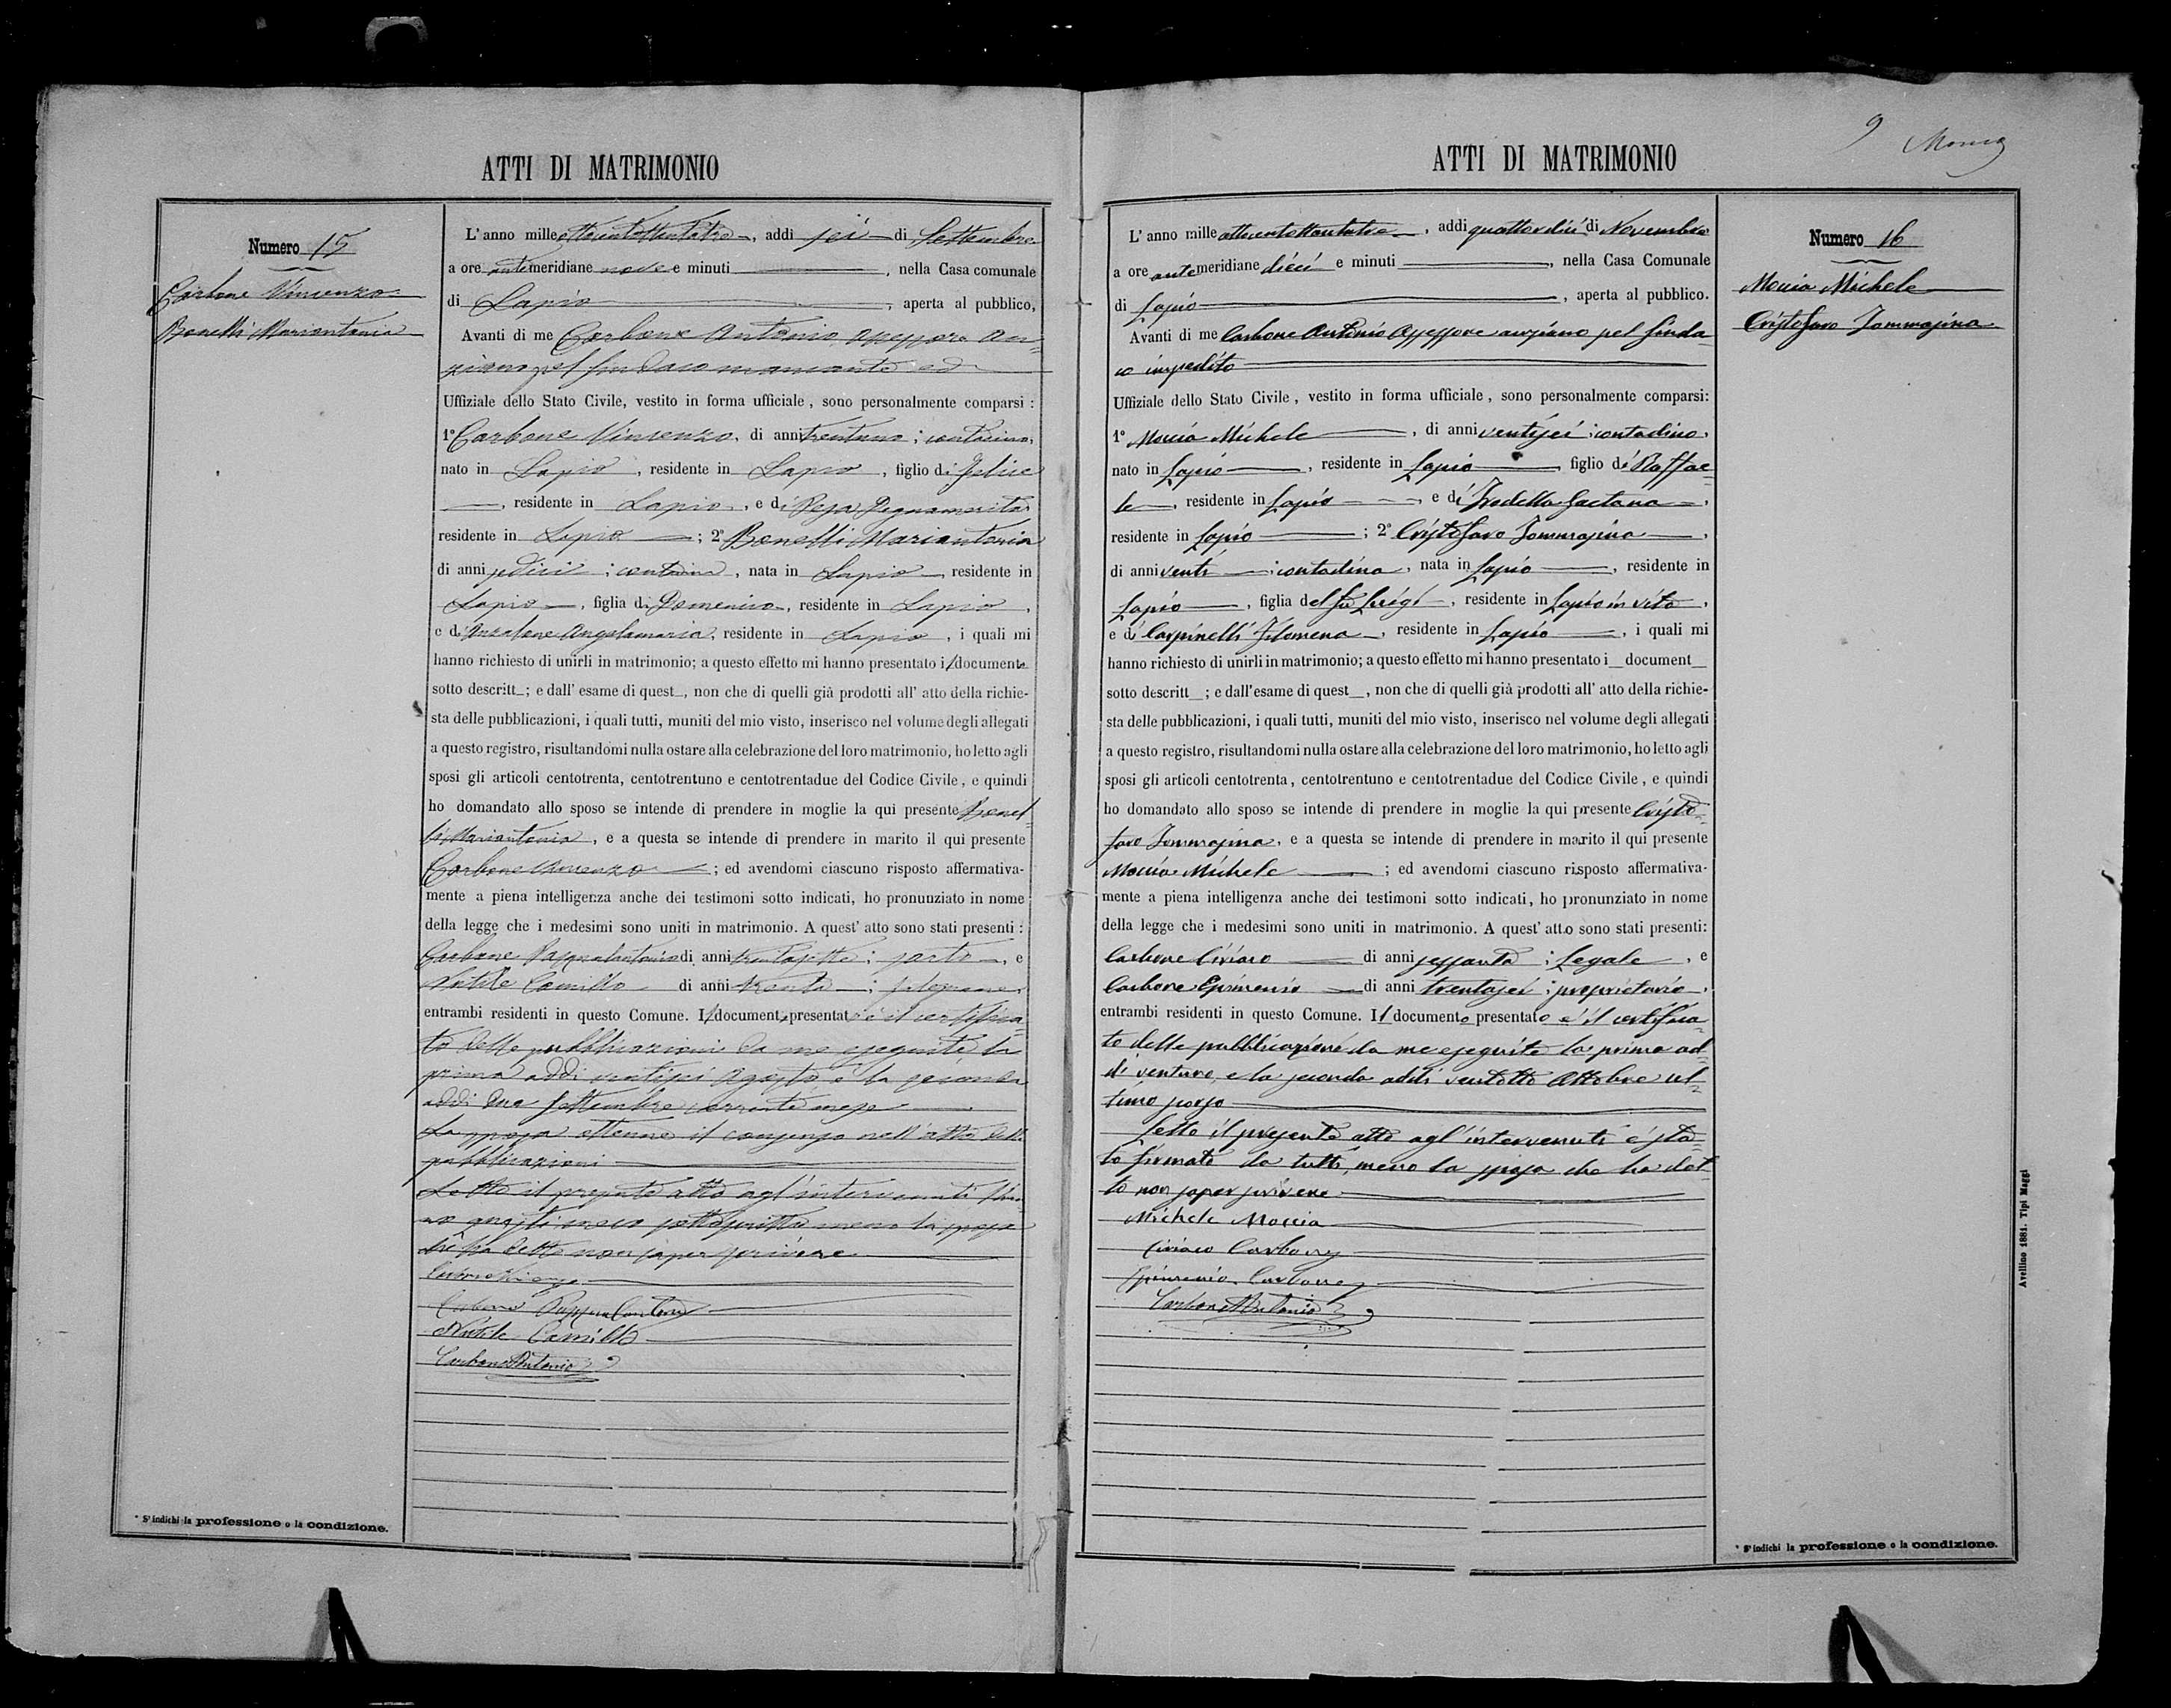 ATTI DI MATRIMONIO
Numero 15
Carbone Vincenzo
Bonelli Mariantonia
L'anno mille ottocentottantatre, addì sei di Settembre
a ore antimeridiane nove e minuti , nella Casa comunale
di Lapio , aperta al pubblico,
Avanti di me Carbone Antonio Assessore An-
ziano pel Sindaco mancante ed
Uffiziale dello Stato Civile, vestito in forma ufficiale, sono personalmente comparsi :
1º Carbone Vincenzo, di anni trentuno; contadino,
nato in Lapio, residente in Lapio, figlio di Felice
, residente in Lapio, e di
residente in Lapio ; 2º Bonelli Mariantonia
di anni sedici ; contadina, nata in Lapio, residente in
Lapio, figlia di Domenico, residente in Lapio,
e di Anzalone Angelamaria, residente in Lapio, i quali mi
hanno richiesto di unirli in matrimonio; a questo effetto mi hanno presentato il document
sotto descritt_; e dall' esame di quest_, non che di quelli già prodotti all' atto della richie-
sta delle pubblicazioni, i quali tutti, muniti del mio visto, inserisco nel volume degli allegati
a questo registro, risultandomi nulla ostare alla celebrazione del loro matrimonio, ho letto agli
sposi gli articoli centotrenta, centotrentuno e centotrentadue del Codice Civile, e quindi
ho domandato allo sposo se intende di prendere in moglie la qui presente Bonel-
li Mariantonia, e a questa se intende di prendere in marito il qui presente
Carbone Vincenzo ; ed avendomi ciascuno risposto affermativa-
mente a piena intelligenza anche dei testimoni sotto indicati, ho pronunziato in nome
della legge che i medesimi sono uniti in matrimonio. A quest' atto sono stati presenti :
Carbone Pasqualantonio di anni trentasette; sarto, e
Nutile Camillo di anni trenta ; falegname,
entrambi residenti in questo Comune. Il document presentat è il certifica-
to delle pubblicazioni da me eseguite la
prima addì ventisei Agosto, e la seconda
addì due Settembre corrente mese
La sposa ottenne il consenso nell'atto delle
pubblicazioni
Letto il presente atto agl'intervenuti
questi meco sottoscritto meno la sposa
che ha detto non saper scrivere
Carbone Vincenzo
Carbone Pasqualantonio
Nutile Camillo
Carbone Antonio
* S'indichi la professione o la condizione.
9
ATTI DI MATRIMONIO
Numero 16
Moccia Michele
Cristofaro Tommasina
L'anno mille ottocentottantatre, addì quattordici di Novembre
a ore antemeridiane dieci e minuti , nella Casa Comunale
di Lapio , aperta al pubblico.
Avanti di me Carbone Antonio Assessore anziano pel Sinda-
co impedito
Uffiziale dello Stato Civile, vestito in forma ufficiale, sono personalmente comparsi:
1º Moccia Michele , di anni ventisei; contadino,
nato in Lapio , residente in Lapio figlio di Raffae-
le, residente in Lapio , e di Gaetana,
residente in Lapio ; 2º Cristofaro Tommasina ,
di anni venti ; contadina, nata in Lapio , residente in
Lapio , figlia del fu Luigi, residente in Lapio in vita,
e di Carpinelli Filomena, residente in Lapio , i quali mi
hanno richiesto di unirli in matrimonio; a questo effetto mi hanno presentato i_ document_
sotto descritt_; e dall'esame di quest_, non che di quelli già prodotti all' atto della richie-
sta delle pubblicazioni, i quali tutti, muniti del mio visto, inserisco nel volume degli allegati
a questo registro, risultandomi nulla ostare alla celebrazione del loro matrimonio, ho letto agli
sposi gli articoli centotrenta, centotrentuno e centotrentadue del Codice Civile, e quindi
ho domandato allo sposo se intende di prendere in moglie la qui presente Cristo-
faro Tommasina, e a questa se intende di prendere in marito il qui presente
Moccia Michele ; ed avendomi ciascuno risposto affermativa-
mente a piena intelligenza anche dei testimoni sotto indicati, ho pronunziato in nome
della legge che i medesimi sono uniti in matrimonio. A quest' atto sono stati presenti:
Carbone Ciriaco di anni sessanta ; Legale, e
Carbone Epimenio di anni trentasei; proprietario,
entrambi residenti in questo Comune. Il documento presentato è il certifica-
to delle pubblicazioni da me eseguite la prima ad-
dì ventuno, e la seconda addì ventotto Ottobre ul-
timo scorso
Letto il presente atto agl'intervenuti è sta-
to firmato da tutti, meno la sposa che ha det-
to non saper scrivere
Michele Moccia
Ciriaco Carbone
Epimenio Carbone
Carbone Antonio
* S'indichi la professione o la condizione.
Avellino 1881. Tipi Maggi